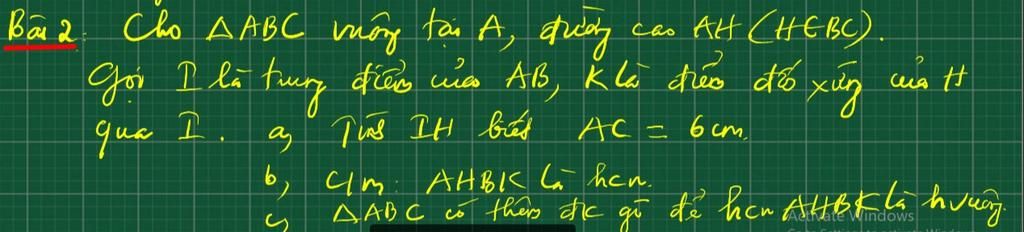 Bài 2: Cho △ABC vuông tại A, đường cao AH (H∈BC).
Gọi I là trung điểm của AB, K là điểm đối xứng của H
qua I. a, Tính IH biết AC = 6cm.
b, C/m: AHBK là hcn.
c, △ABC có thêm đk gì để hcn AHBK là hvuông.
Activate Windows